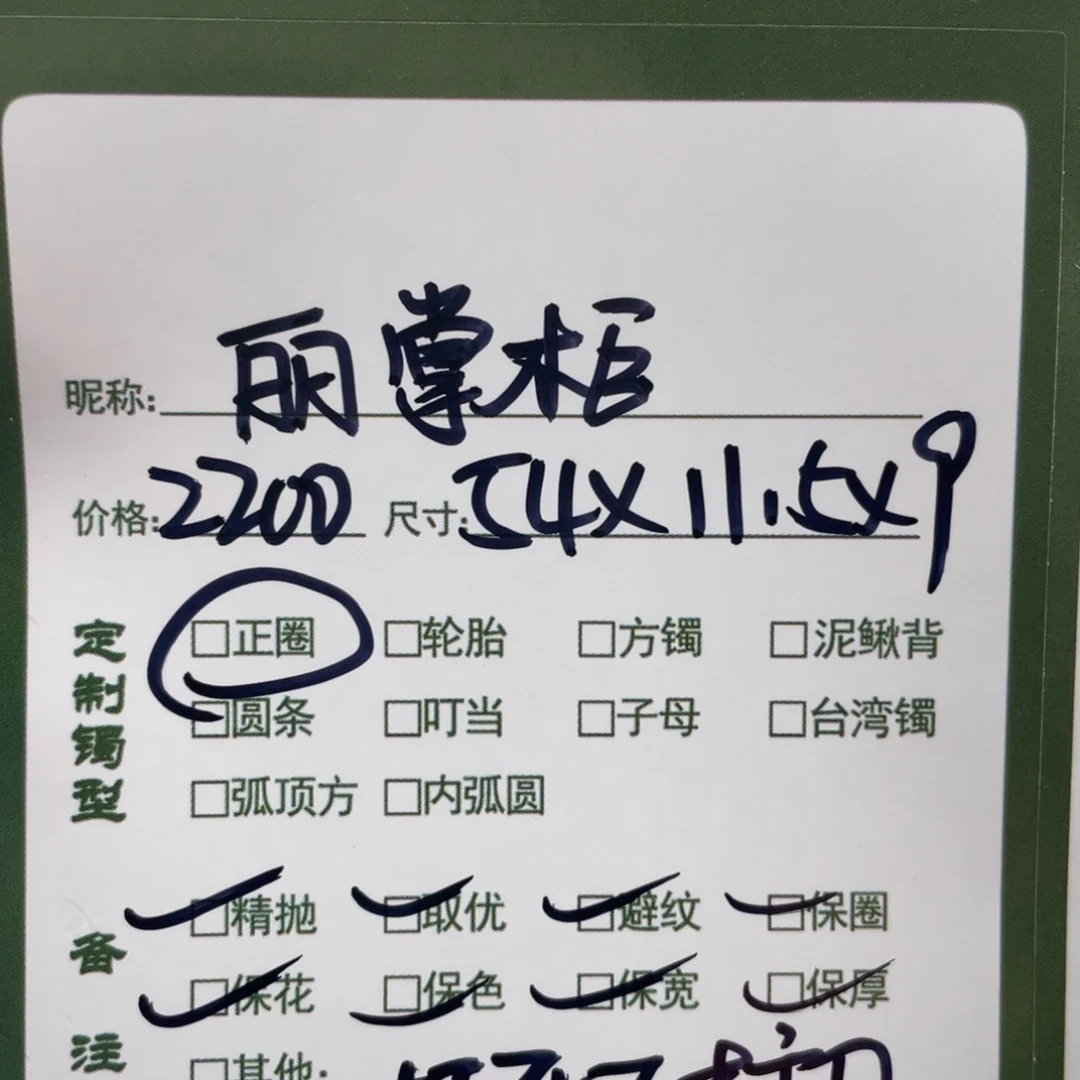 昵称: 丽掌柜
价格: 2200 尺寸: 54X11.5X9
定制镯型
□正圈 □轮胎 □方镯 □泥鳅背
□圆条 □叮当 □子母 □台湾镯
□弧顶方 □内弧圆
备注
□精抛 □取优 □避纹 □保圈
□保花 □保色 □保宽 □保厚
□其他: